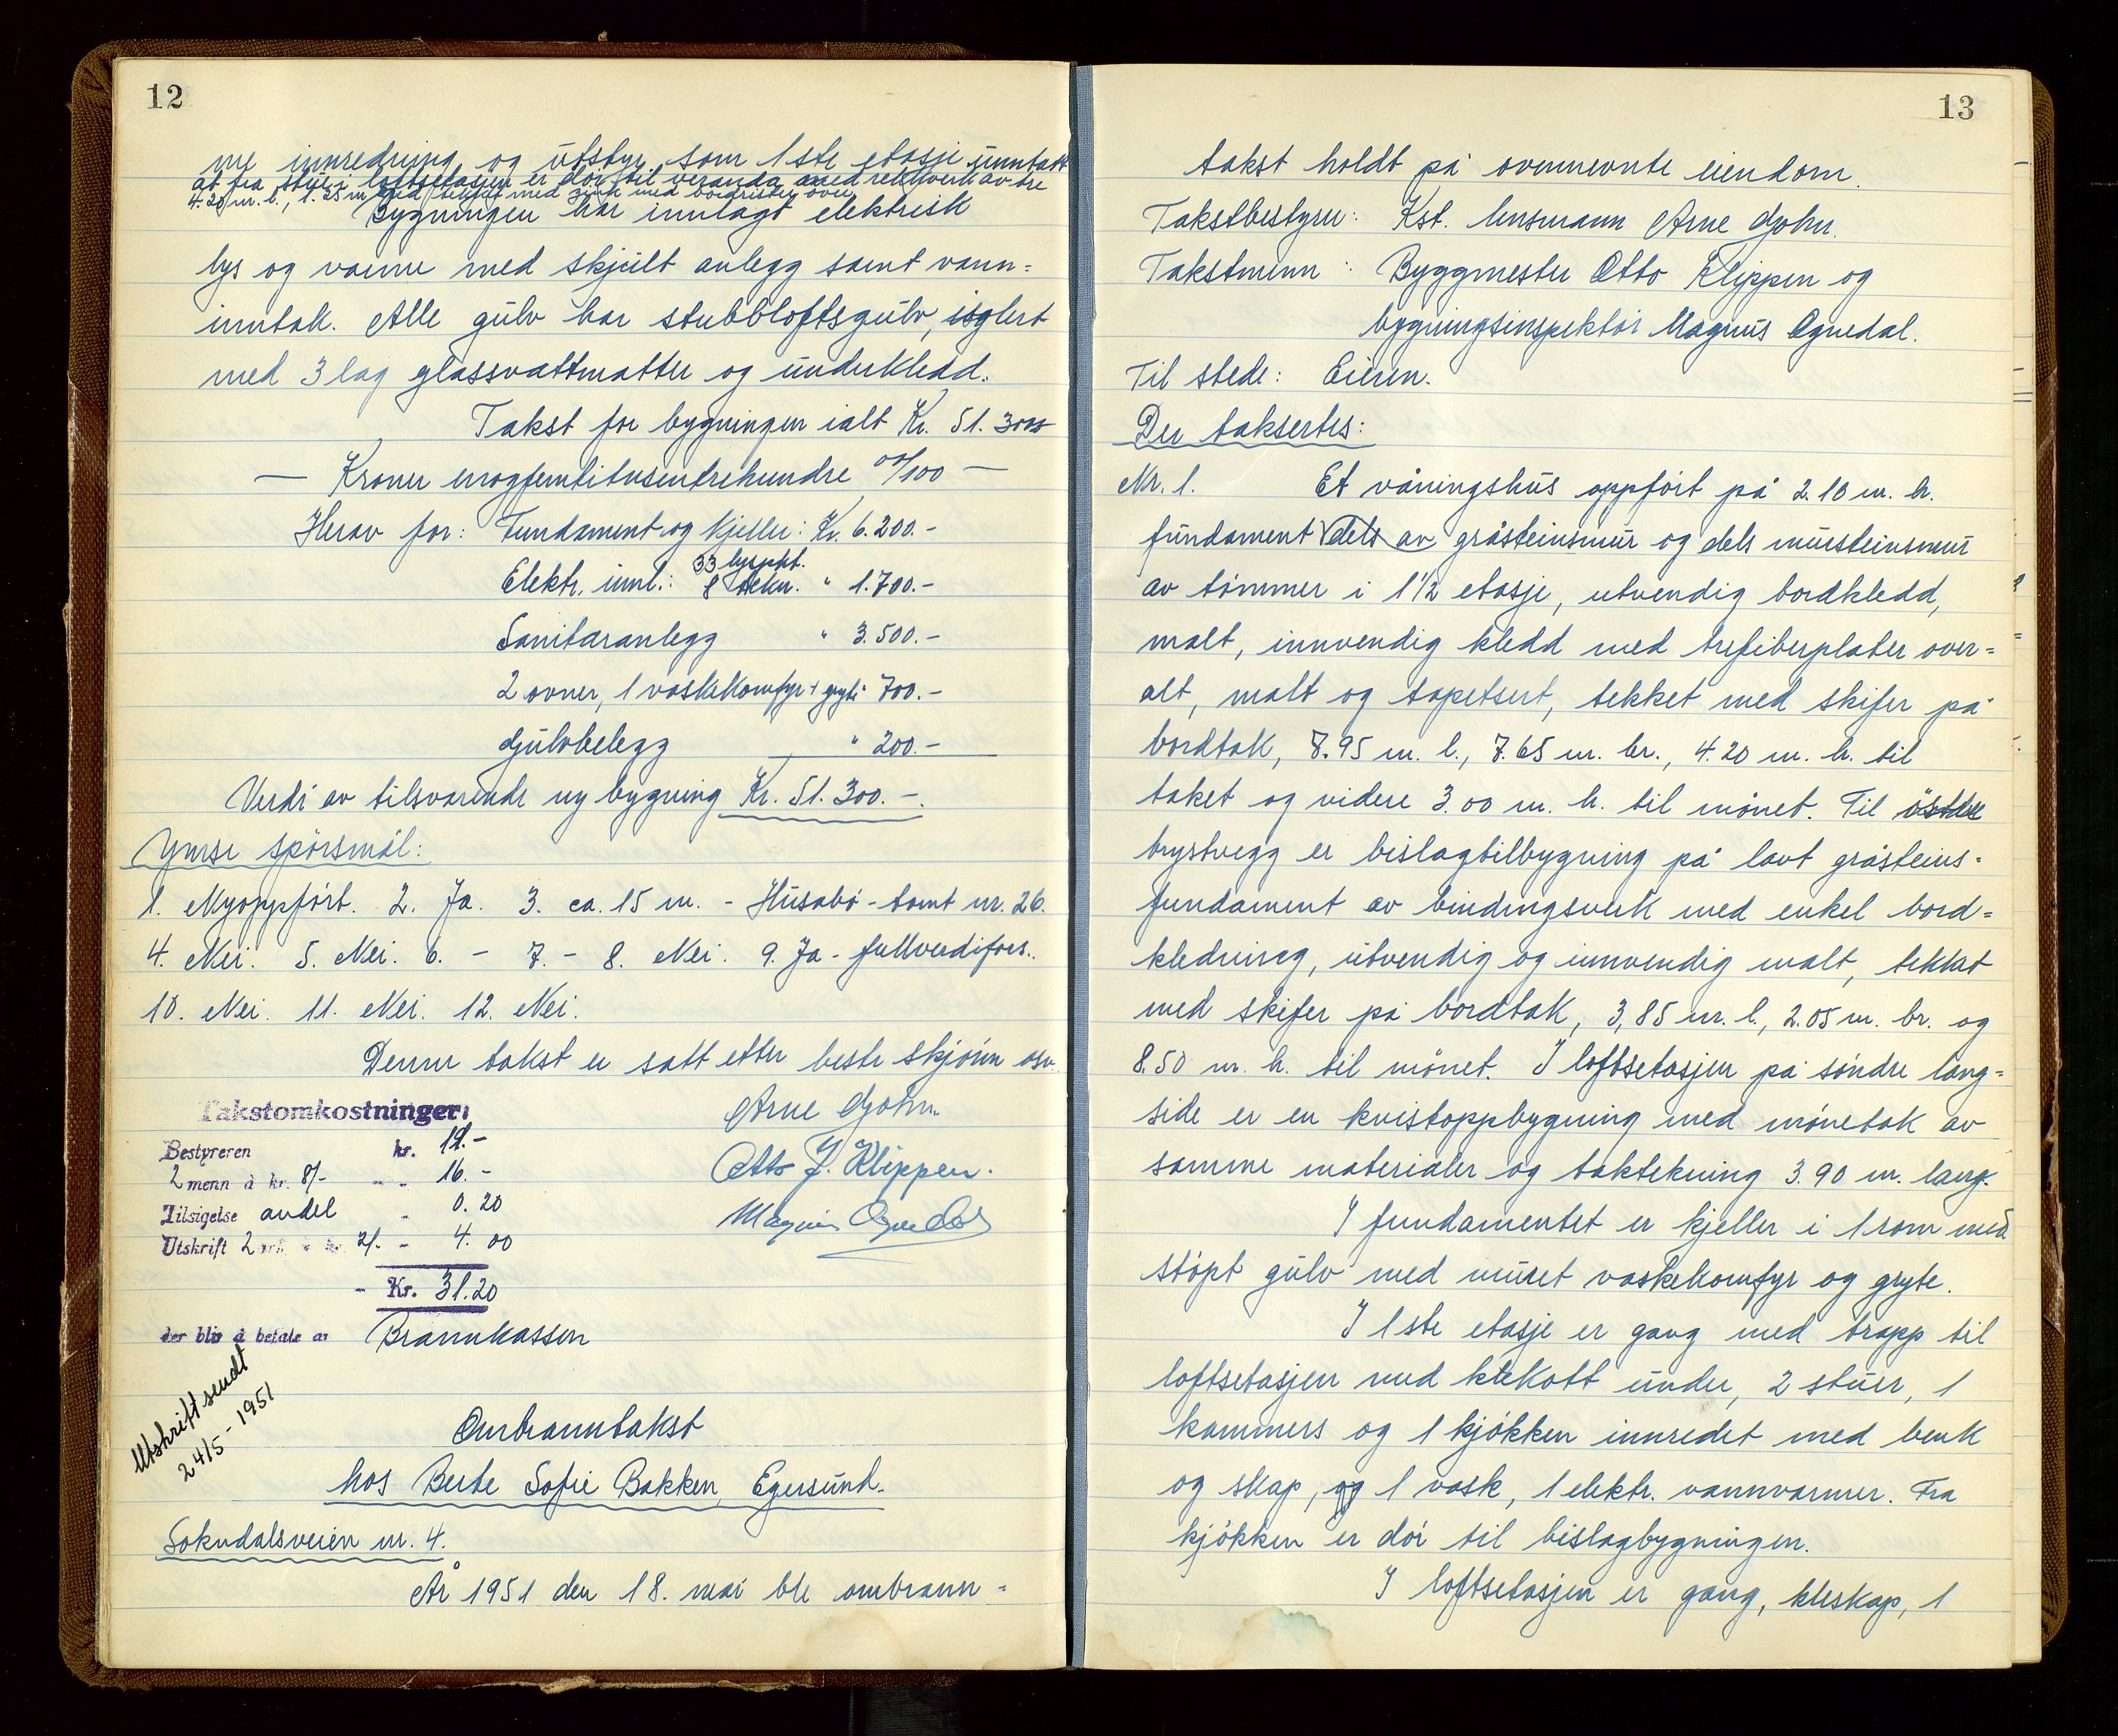 12
me innredning og utstyr som 1ste etasje unntatt
at fra stue i loftsetasjen er dör til veranda med rekkverk av tre
4.20 m. l., 1.25 m bred tekket med zink med bordrister over
Bygningen har innlagt elektrisk
lys og varme med skjült anlegg samt vann=
inntak. Alle gülv har stubbloftsgülv, isolert
med 3 lag glassvattmatter og ünderkledd.
Takst for bygningen ialt Kr. 51.300
— Kroner enogfemtitusentrehundre 00/100 —
Herav for: Fundament og kjeller: Kr. 6.200.-
33 lyspkt.
Elektr. innl.: 8 stikk. " 1.700.-
Sanitæranlegg " 3.500.-
2 ovner, 1 vaskekomfyr + gryte " 700.-
Gülvbelegg " 200.-
Verdi av tilsvarende ny bygning Kr. 51.300.-.
Ymse spörsmål:
1. Nyoppfört. 2. Ja. 3. ca. 15 m. - Hüsabö - tomt nr. 26.
4. Nei. 5. Nei. 6. - 7. - 8. Nei. 9. Ja - fullverdifors..
10. Nei. 11. Nei. 12. Nei.
Denne takst er satt etter beste skjönn osv.
Takstomkostninger:
Arne Gjohn
Bestyreren kr. 11.-
2 menn à kr. 8/- - - 16.-
Otto J. Klippen.
Tilsigelse andel - 0.20
Magnus Ognedal
Utskrift 2 ark à kr. 2/- - 4.00
- Kr. 31.20
der blir å betale av Brannkassen
Utskrift sendt
24/5 - 1951
Ombranntakst
hos Berte Sofie Bakken, Egersünd.
Sokndalsveien nr. 4.
År 1951 den 18. mai ble ombrann =
13
takst holdt på ovennevnte eiendom.
Takstbestyrer: Kst. lensmann Arne Gjohn.
Takstmenn: Byggmester Otto Klippen og
bygningsinspektör Magnus Ognedal.
Til stede: Eieren.
Der taksertes:
Nr. 1. Et våningshüs oppfört på 2.10 m. h.
fündament dels av gråsteinsmür og dels mürsteinsmür
av tömmer i 1 1/2 etasje, utvendig bordkledd,
malt, innvendig kledd med trefiberplater over=
alt, malt og tapetsert, tekket med skifer på
bordtak, 8.95 m. l., 7.65 m. br., 4.20 m. h. til
taket og videre 3.00 m. h. til mönet. Til östre
brystvegg er bislagtilbygning på lavt gråsteins=
fundament av bindingsverk med enkel bord=
kledning, ütvendig og innvendig malt, tekket
med skifer på bordtak, 3,85 m. l., 2.05 m. br. og
8.50 m. h. til mönet. I loftsetasjen på söndre lang=
side er en kvistoppbygning med mönetak av
samme materialer og taktekning 3.90 m. lang.
I fundamentet er kjeller i 1 rom med
stöpt gülv med müret vaskekomfyr og gryte.
I 1ste etasje er gang med trapp til
loftsetasjen med klekott ünder, 2 stüer, 1
kammers og 1 kjökken innredet med benk
og skap, og 1 vask, 1 elektr. vannvarmer. Fra
kjökken er dör til bislagbygningen.
I loftsetasjen er gang, kleskap, 1